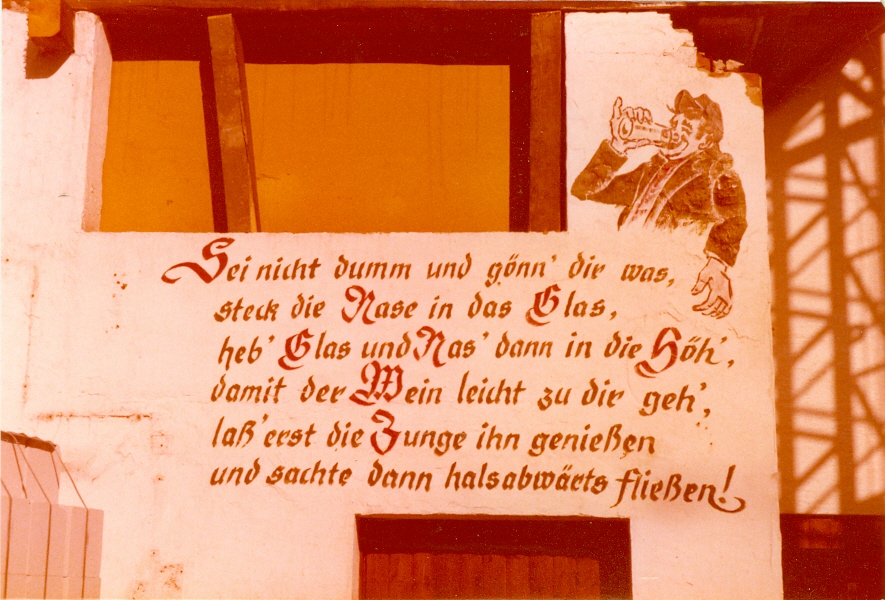 Sei nicht dumm und gönn' dir was,
steck die Nase in das Glas,
heb' Glas und Nas' dann in die Höh',
damit der Wein leicht zu dir geh',
laß' erst die Zunge ihn genießen
und sachte dann halsabwärts fließen!